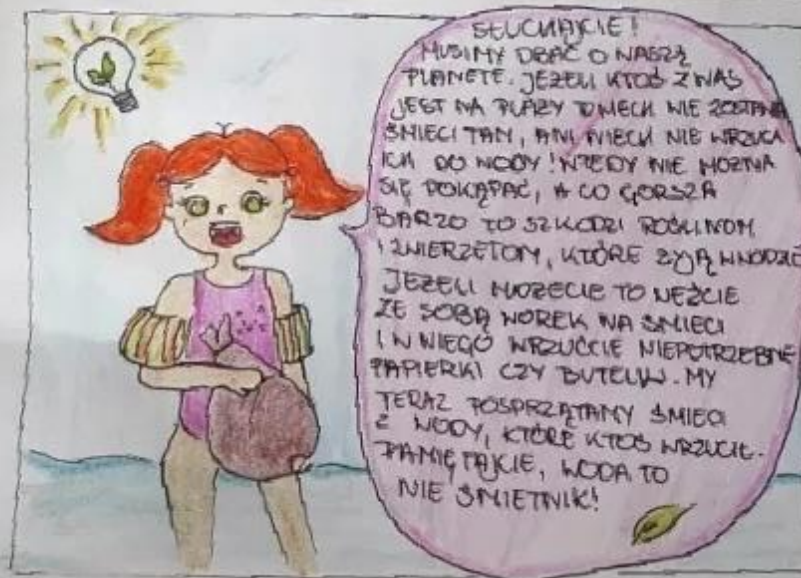 SŁUCHAJCIE!
MUSIMY DBAĆ O NASZĄ
PLANETE. JEŻELI KTOŚ Z NAS
JEST NA PLAŻY TO NIECH NIE ZOSTAWIA
ŚMIECI TAM, ANI NIECH NIE WRZUCA
ICH DO WODY! WTEDY NIE MOŻNA
SIĘ POKĄPAĆ, A CO GORSZA
BARZO TO SZKODZI ROŚLINOM
I ZWIERZĘTOM, KTÓRE ŻYJĄ W WODZIE
JEŻELI MOŻECIE TO WEŹCIE
ZE SOBĄ WOREK NA ŚMIECI
I W NIEGO WRZUĆCIE NIEPOTRZEBNE
PAPIERKI CZY BUTELKI. MY
TERAZ POSPRZĄTAMY ŚMIECI
Z WODY, KTÓRE KTOŚ WRZUCIŁ.
PAMIĘTAJCIE, WODA TO
NIE ŚMIETNIK!